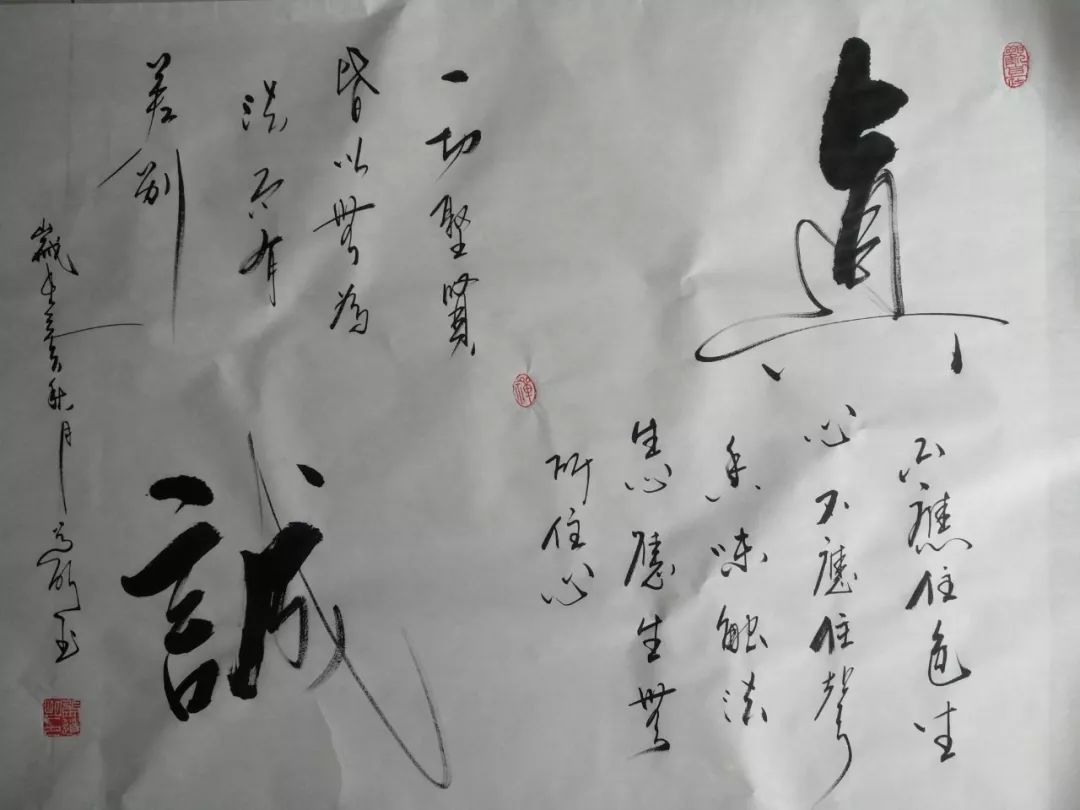 真
不應住色生
心不應住聲
香味触法
生心應生無
所住心
一切聖賢
皆以無為
法而有
差別
誠
歲在己亥秋月